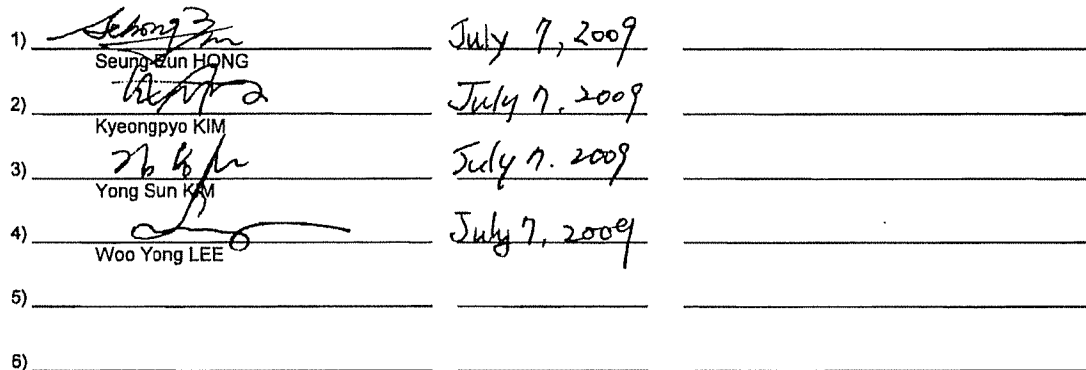 1) July 7, 2009
Seung Eun HONG
2) July 7, 2009
Kyeongpyo KIM
3) July 7. 2009
Yong Sun KIM
4) July 7, 2009
Woo Yong LEE
5)
6)